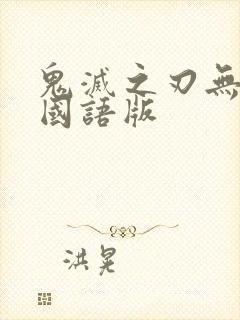 鬼滅之刃無
國語版
洪晃